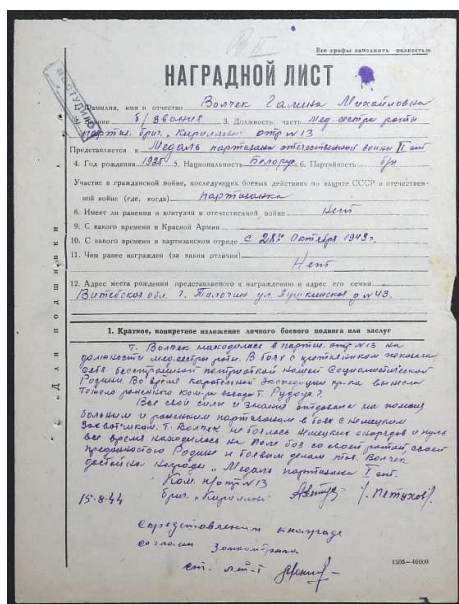 Все графы заполнять полностью
НАГРАДНОЙ ЛИСТ
Фамилия, имя и отчество Волчек Галина Михайловна
б/звания 3. Должность, часть мед. сестра роты
партиз. бриг. „Кириллова" отр. №13
Представляется к Медаль партизана отечественной войны
4. Год рождения 1925 5. Национальность Белорус. 6. Партийность б/п
Участие в гражданской войне, последующих боевых действиях по защите СССР и отечествен-
ной войне (где, когда) партизанка
8. Имеет ли ранения и контузии в отечественной войне Нет
9. С какого времени в Красной Армии
10. С какого времени в партизанском отряде с 28го Октября 1943г.
11. Чем ранее награжден (за какия отличия)
Нет
12. Адрес места рождения представляемого к награждению и адрес его семьи
Витебская обл. г. Толочин ул. Пушкинская д №43.
Для подшивки
1. Краткое, конкретное изложение личного боевого подвига или заслуг
т. Волчек находилась в партиз. отр №13 на
должности медсестры роты. В боях с показала
себя бесстрашной патриоткой нашей Социалистической
Родины. Во время карательной экспедиции пр-ка вынесла
тяжело раненного ком-ра взвода т.
Все свои силы и знания отдавала на помощь
больным и раненым партизанам в боях с немецким
захватчиком. т. Волчек не боялась немецких снарядов и пуль
все время находилась на поле боя со своей ротой своей
преданностью Родине и боевым делам тов. Волчек
достойна награды „Медаль партизана I ст.
Ком. п/отр №13
бриг. „Кириллова" /Петухов/
15-8-44
С представлением к награде
согласен
ст. лейт-т
1505—40000